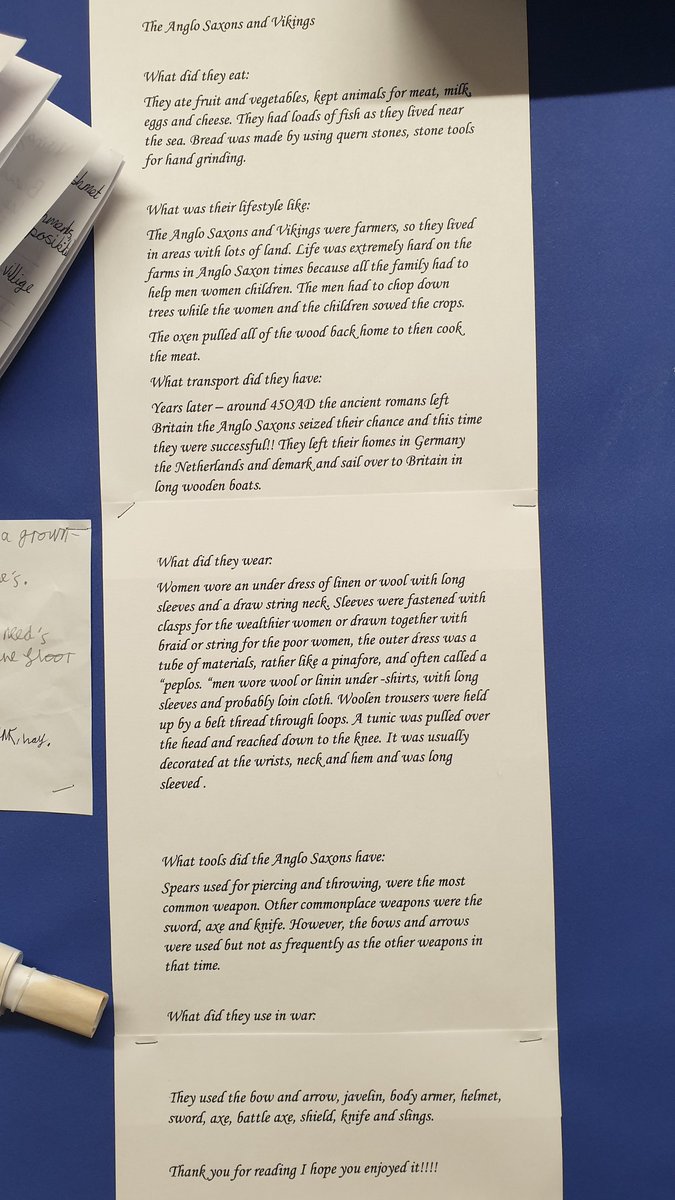 The Anglo Saxons and Vikings
What did they eat:
They ate fruit and vegetables, kept animals for meat, milk,
eggs and cheese. They had loads of fish as they lived near
the sea. Bread was made by using quern stones, stone tools
for hand grinding.
What was their lifestyle like:
The Anglo Saxons and Vikings were farmers, so they lived
in areas with lots of land. Life was extremely hard on the
farms in Anglo Saxon times because all the family had to
help men women children. The men had to chop down
trees while the women and the children sowed the crops.
The oxen pulled all of the wood back home to then cook
the meat.
What transport did they have:
Years later – around 45OAD the ancient romans left
Britain the Anglo Saxons seized their chance and this time
they were successful!! They left their homes in Germany
the Netherlands and demark and sail over to Britain in
long wooden boats.
What did they wear:
Women wore an under dress of linen or wool with long
sleeves and a draw string neck. Sleeves were fastened with
clasps for the wealthier women or drawn together with
braid or string for the poor women, the outer dress was a
tube of materials, rather like a pinafore, and often called a
“peplos. “men wore wool or linin under -shirts, with long
sleeves and probably loin cloth. Woolen trousers were held
up by a belt thread through loops. A tunic was pulled over
the head and reached down to the knee. It was usually
decorated at the wrists, neck and hem and was long
sleeved .
What tools did the Anglo Saxons have:
Spears used for piercing and throwing, were the most
common weapon. Other commonplace weapons were the
sword, axe and knife. However, the bows and arrows
were used but not as frequently as the other weapons in
that time.
What did they use in war:
They used the bow and arrow, javelin, body armer, helmet,
sword, axe, battle axe, shield, knife and slings.
Thank you for reading I hope you enjoyed it!!!!
Villige
a grown-
need's
hay.